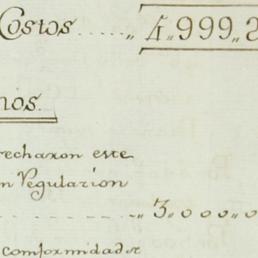 Costos......" 4"999"2
nos.
rechaxon este
n Vegularion
......" 3"000"0
comformidad de